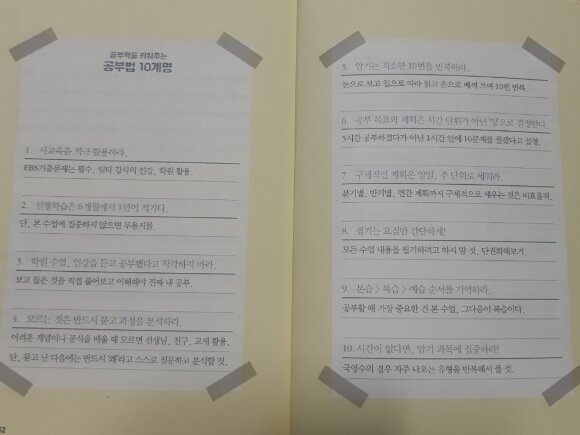 공부력을 키워주는
공부법 10계명
1. 사교육을 적극 활용하라.
EBS기출문제는 필수. 일타 강사의 인강, 학원 활용.
2 선행학습은 6개월에서 1년이 적기다.
단, 본 수업에 집중하지 않으면 무용지물.
3. 학원 수업, 인강을 듣고 공부했다고 착각하지 마라.
보고 들은 것을 직접 풀어보고 이해해야 진짜 내 공부.
4. 모르는 것은 반드시 묻고 과정을 분석하라.
어려운 개념이나 공식을 배울 때 모르면 선생님, 친구, 교재 활용.
단, 묻고 난 다음에는 반드시 '왜'라고 스스로 질문하고 분석할 것.
62
5. 암기는 최소한 10번을 반복하라.
눈으로 보고 입으로 따라 읽고 손으로 베껴 쓰며 10번 반복.
6. 공부 목표와 계획은 시간 단위가 아닌 '양'으로 결정한다.
5시간 공부하겠다가 아닌 1시간 안에 10문제를 풀겠다고 설정.
7. 구체적인 계획은 일일, 주 단위로 세워라.
분기별, 반기별, 연간 계획까지 구체적으로 세우는 것은 비효율적.
8. 필기는 요점만 간단하게!
모든 수업 내용을 필기하려고 하지 말 것. 단권화해보기.
9. 본습 〉 복습 〉 예습 순서를 기억하라.
공부할 때 가장 중요한 건 본 수업, 그다음이 복습이다.
10. 시간이 없다면, 암기 과목에 집중하라!
국영수의 경우 자주 나오는 유형을 반복해서 풀 것.